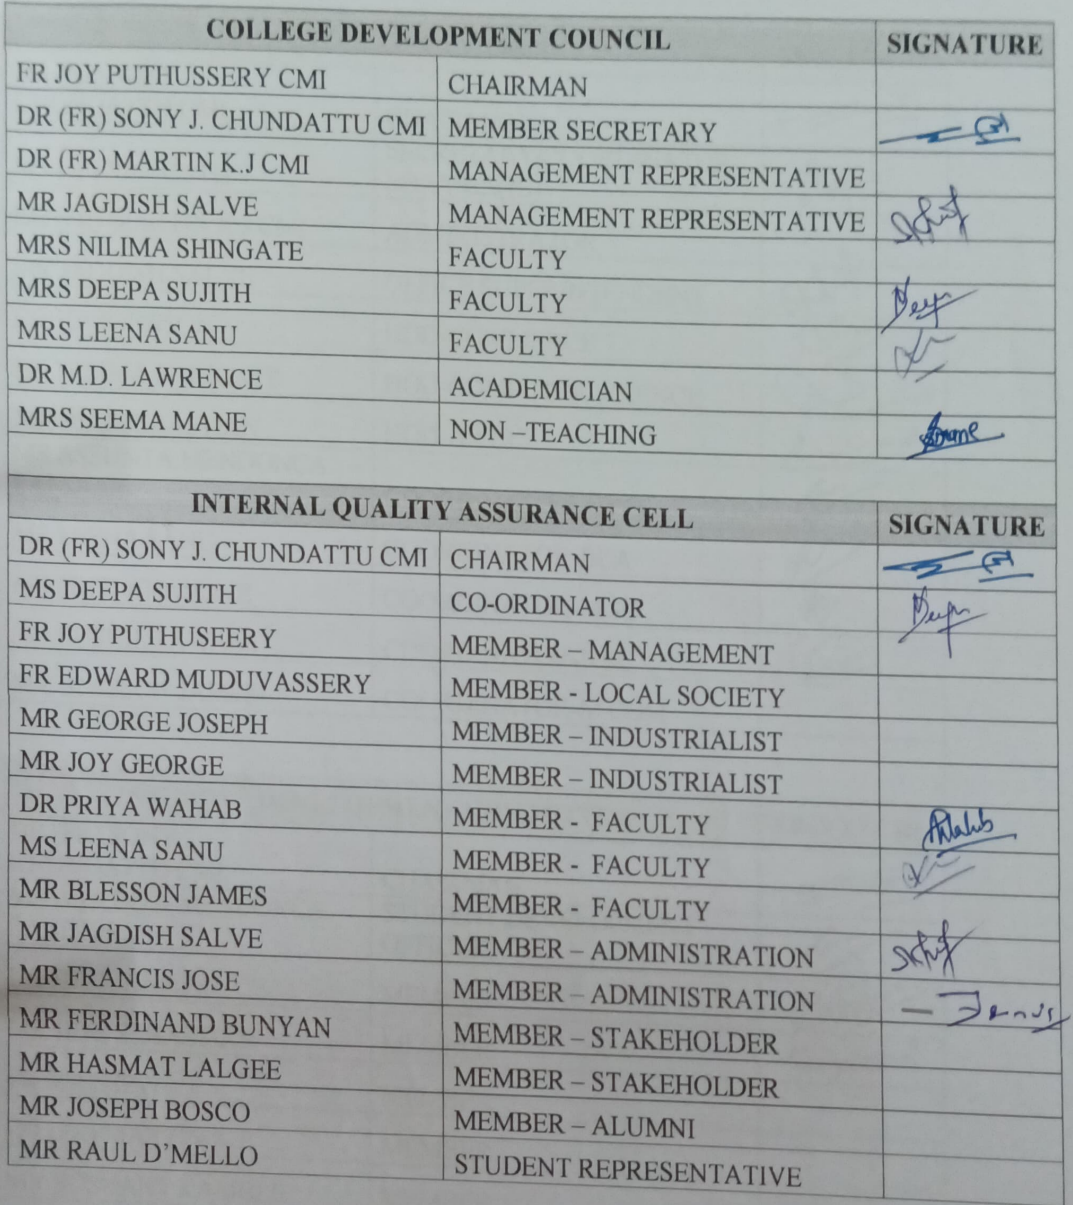 COLLEGE DEVELOPMENT COUNCIL SIGNATURE
FR JOY PUTHUSSERY CMI CHAIRMAN
DR (FR) SONY J. CHUNDATTU CMI MEMBER SECRETARY
DR (FR) MARTIN K.J CMI MANAGEMENT REPRESENTATIVE
MR JAGDISH SALVE MANAGEMENT REPRESENTATIVE
MRS NILIMA SHINGATE FACULTY
MRS DEEPA SUJITH FACULTY
MRS LEENA SANU FACULTY
DR M.D. LAWRENCE ACADEMICIAN
MRS SEEMA MANE NON –TEACHING
INTERNAL QUALITY ASSURANCE CELL SIGNATURE
DR (FR) SONY J. CHUNDATTU CMI CHAIRMAN
MS DEEPA SUJITH CO-ORDINATOR
FR JOY PUTHUSEERY MEMBER – MANAGEMENT
FR EDWARD MUDUVASSERY MEMBER - LOCAL SOCIETY
MR GEORGE JOSEPH MEMBER – INDUSTRIALIST
MR JOY GEORGE MEMBER – INDUSTRIALIST
DR PRIYA WAHAB MEMBER - FACULTY
MS LEENA SANU MEMBER - FACULTY
MR BLESSON JAMES MEMBER - FACULTY
MR JAGDISH SALVE MEMBER – ADMINISTRATION
MR FRANCIS JOSE MEMBER – ADMINISTRATION
MR FERDINAND BUNYAN MEMBER – STAKEHOLDER
MR HASMAT LALGEE MEMBER – STAKEHOLDER
MR JOSEPH BOSCO MEMBER – ALUMNI
MR RAUL D’MELLO STUDENT REPRESENTATIVE